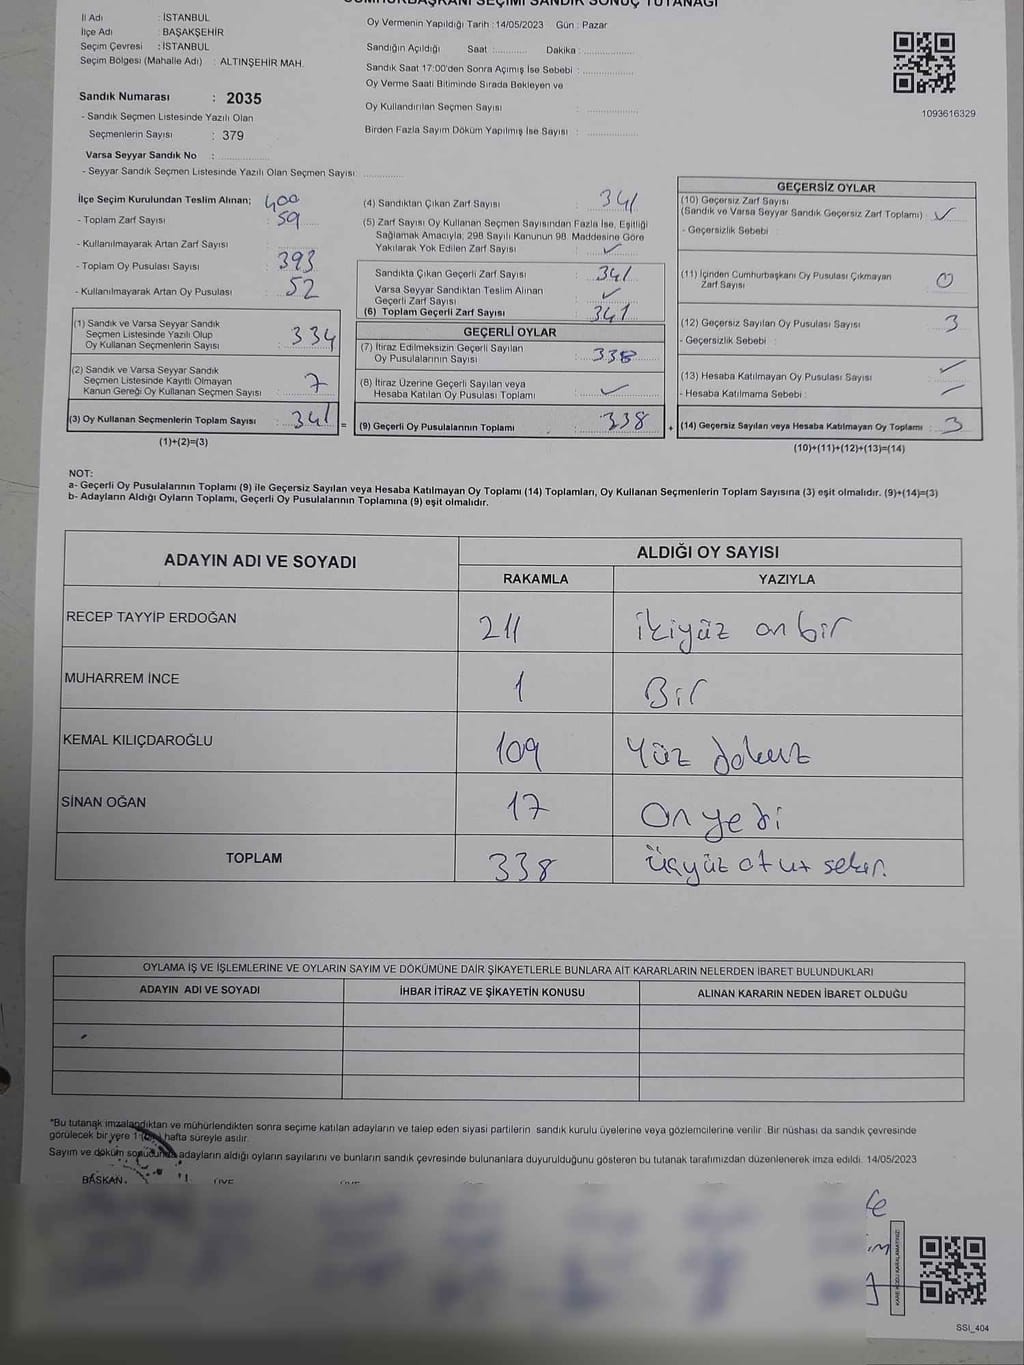 CUMHURBAŞKANI SEÇİMİ SANDIK SONUÇ TUTANAĞI
İl Adı : İSTANBUL
İlçe Adı : BAŞAKŞEHİR
Seçim Çevresi : İSTANBUL
Seçim Bölgesi (Mahalle Adı) : ALTINŞEHİR MAH.
Sandık Numarası : 2035
- Sandık Seçmen Listesinde Yazılı Olan
Seçmenlerin Sayısı : 379
Varsa Seyyar Sandık No :
- Seyyar Sandık Seçmen Listesinde Yazılı Olan Seçmen Sayısı:
Oy Vermenin Yapıldığı Tarih : 14/05/2023 Gün : Pazar
Sandığın Açıldığı Saat : Dakika :
Sandık Saat 17:00'den Sonra Açımış İse Sebebi :
Oy Verme Saati Bitiminde Sırada Bekleyen ve
Oy Kullandırılan Seçmen Sayısı :
Birden Fazla Sayım Döküm Yapılmış İse Sayısı :
1093616329
İlçe Seçim Kurulundan Teslim Alınan;
- Toplam Zarf Sayısı : 400
- Kullanılmayarak Artan Zarf Sayısı : 59
- Toplam Oy Pusulası Sayısı : 393
- Kullanılmayarak Artan Oy Pusulası : 52
(1) Sandık ve Varsa Seyyar Sandık
Seçmen Listesinde Yazılı Olup
Oy Kullanan Seçmenlerin Sayısı : 334
(2) Sandık ve Varsa Seyyar Sandık
Seçmen Listesinde Kayıtlı Olmayan
Kanun Gereği Oy Kullanan Seçmen Sayısı : 7
(3) Oy Kullanan Seçmenlerin Toplam Sayısı : 341
(1)+(2)=(3)
=
(4) Sandıktan Çıkan Zarf Sayısı : 341
(5) Zarf Sayısı Oy Kullanan Seçmen Sayısından Fazla İse, Eşitliği
Sağlamak Amacıyla; 298 Sayılı Kanunun 98. Maddesine Göre
Yakılarak Yok Edilen Zarf Sayısı :
Sandıkta Çıkan Geçerli Zarf Sayısı : 341
Varsa Seyyar Sandıktan Teslim Alınan
Geçerli Zarf Sayısı :
(6) Toplam Geçerli Zarf Sayısı : 341
GEÇERLİ OYLAR
(7) İtiraz Edilmeksizin Geçerli Sayılan
Oy Pusulalarının Sayısı : 338
(8) İtiraz Üzerine Geçerli Sayılan veya
Hesaba Katılan Oy Pusulası Toplamı :
(9) Geçerli Oy Pusulalarının Toplamı : 338
+
GEÇERSİZ OYLAR
(10) Geçersiz Zarf Sayısı
(Sandık ve Varsa Seyyar Sandık Geçersiz Zarf Toplamı) :
- Geçersizlik Sebebi :
(11) İçinden Cumhurbaşkanı Oy Pusulası Çıkmayan
Zarf Sayısı : 0
(12) Geçersiz Sayılan Oy Pusulası Sayısı : 3
- Geçersizlik Sebebi :
(13) Hesaba Katılmayan Oy Pusulası Sayısı :
- Hesaba Katılmama Sebebi :
(14) Geçersiz Sayılan veya Hesaba Katılmayan Oy Toplamı : 3
(10)+(11)+(12)+(13)=(14)
NOT:
a- Geçerli Oy Pusulalarının Toplamı (9) ile Geçersiz Sayılan veya Hesaba Katılmayan Oy Toplamı (14) Toplamları, Oy Kullanan Seçmenlerin Toplam Sayısına (3) eşit olmalıdır. (9)+(14)=(3)
b- Adayların Aldığı Oyların Toplamı, Geçerli Oy Pusulalarının Toplamına (9) eşit olmalıdır.
ADAYIN ADI VE SOYADI ALDIĞI OY SAYISI
RAKAMLA YAZIYLA
RECEP TAYYİP ERDOĞAN 211 ikiyüz onbir
MUHARREM İNCE 1 Bir
KEMAL KILIÇDAROĞLU 109 Yüz dokuz
SİNAN OĞAN 17 On yedi
TOPLAM 338 üçyüz otuz sekiz
OYLAMA İŞ VE İŞLEMLERİNE VE OYLARIN SAYIM VE DÖKÜMÜNE DAİR ŞİKAYETLERLE BUNLARA AİT KARARLARIN NELERDEN İBARET BULUNDUKLARI
ADAYIN ADI VE SOYADI İHBAR İTİRAZ VE ŞİKAYETİN KONUSU ALINAN KARARIN NEDEN İBARET OLDUĞU
*Bu tutanak imzalandıktan ve mühürlendikten sonra seçime katılan adayların ve talep eden siyasi partilerin sandık kurulu üyelerine veya gözlemcilerine verilir. Bir nüshası da sandık çevresinde
görülecek bir yere 1 hafta süreyle asılır.
Sayım ve döküm sonucunda adayların aldığı oyların sayılarını ve bunların sandık çevresinde bulunanlara duyurulduğunu gösteren bu tutanak tarafımızdan düzenlenerek imza edildi. 14/05/2023
BAŞKAN
SSI_404